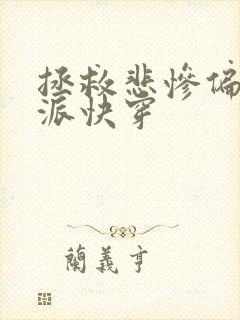 拯救悲惨偏
派快穿
蘭義亨